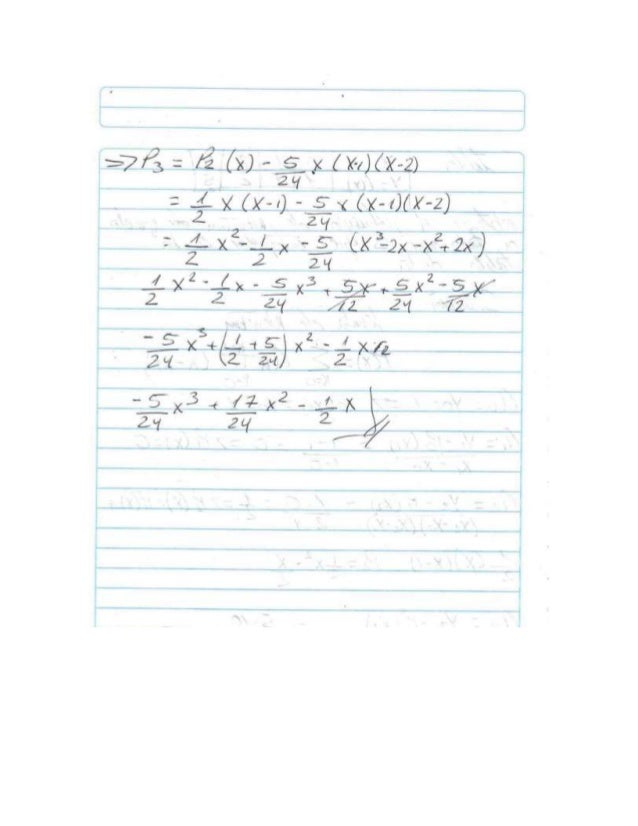 => P₃ = P₂ (x) - 5/24 x (x-1)(x-2)
= 1/2 x (x-1) - 5/24 x (x-1)(x-2)
= 1/2 x² - 1/2 x - 5/24 (x³-2x-x²+2x)
1/2 x² - 1/2 x - 5/24 x³ + 5x/12 + 5/24 x² - 5/12 x
-5/24 x³ + (1/2 + 5/24) x² - 1/2 x
-5/24 x³ + 17/24 x² - 1/2 x